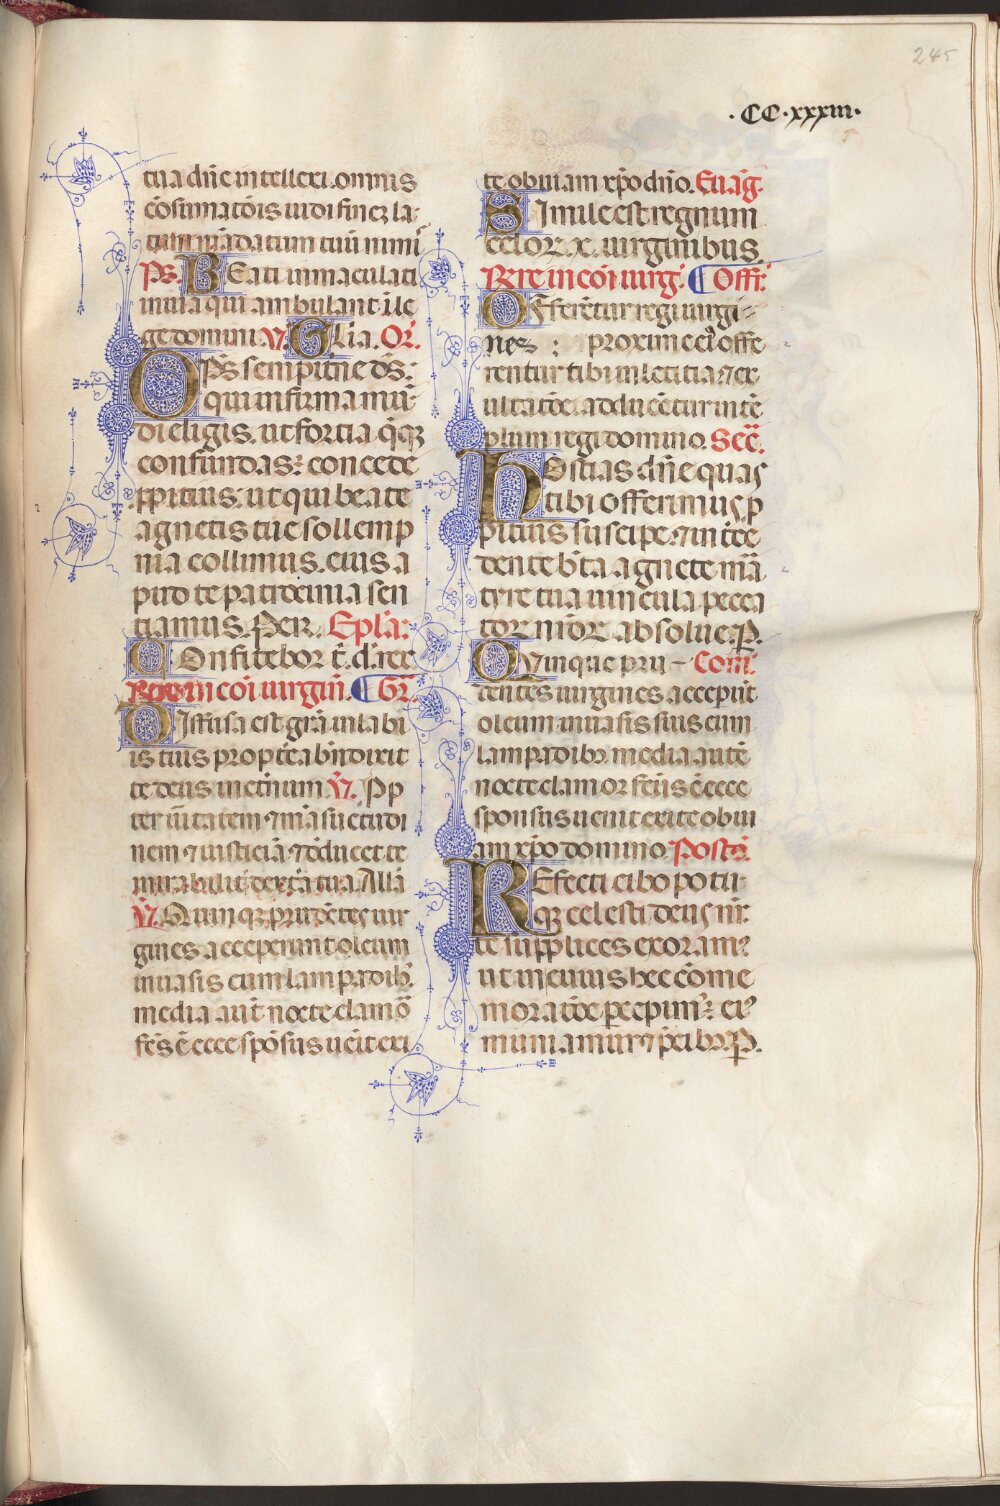 245
·CC·xxxiii·
tua dn̄e intellexi. omnis
cōsumatōis uidi finez la-
tum mādatum tuū nimi᷒
Ps. Beati immaculati
in uia qui ambulant: ī le
ge domini. V. Glia. Or̄.
OPs̄ sempit̄ne ds̄:
qui infirma mū-
di eligis. ut fortia q̄qz
confundas: concede
ppitius: ut qui beate
agnetis tue sollemp
nia colimus. eius a
pud te patrocinia sen
tiamus. Per. Ep̄la:
Confitebor t̄. d. rex
Rere in cōi uirgin̄. ¶ Gr̄.
Diffusa est gr̄a in labi
is tuis propt̄ea bn̄dixit
te deus in et̄num. V̄. Pp
ter ū̄itatem ⁊ māsuetudi
nem ⁊ iusticiā ⁊ dēducet te
mirabilit̄ dext̄a tua. All̄a
V̄. Quinqz prudētes uir
gines acceperunt oleum
in uasis cum lampadibz.
media aut̄ nocte clamō
fc̄s ē ecce spōsus uēit exi
te obuiam xp̄o dn̄o. Euāḡ.
Simile est regnum
celoꝝ. x. uirginibus.
Rere in cōi uirḡ. ¶ Offr̄.
Offerētur regi uirgi-
nes : proxime ei᷒ offe
rentur tibi in leticia ⁊ ex
ultatōe. adducētur in tē
plum regi domino. Sec̄.
Hostias dn̄e quas
tibi offerimus p
pitius suscipe: ⁊ int̄ce
dente bt̄a agnete mā
tyre tua uincula pecca
toꝝ nr̄oꝝ absolue. P.
Quinque pru- Com̄.
dentes uirgines acceperūt
oleum in uasis suis cum
lampadibz. media autē
nocte clamor fc̄us ē ecce
sponsus uenit exite obui
am xp̄o domino. Postc̄.
Refecti cibo potu
qz celesti deus nr̄.
te supplices exoram᷒
ut in cuius hec cōme
moratōe p̄cepim᷒: ei᷒
muniamur ⁊ p̄cibz. P.